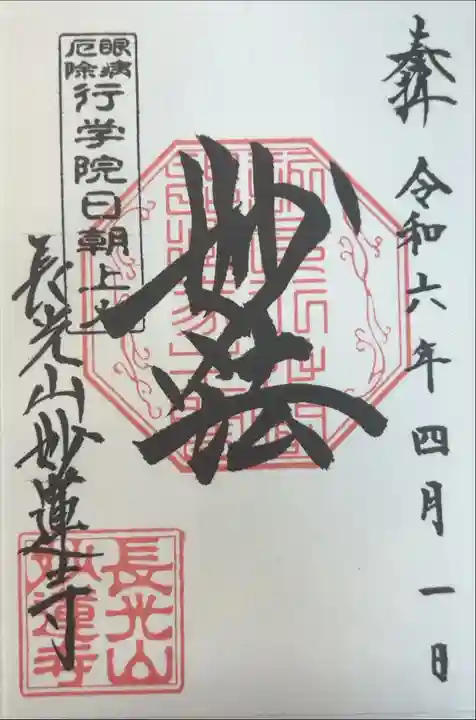 奉拝
令和六年四月一日
妙法
眼病
厄除
行学院日朝上人
長光山妙蓮寺
長光山
妙蓮寺